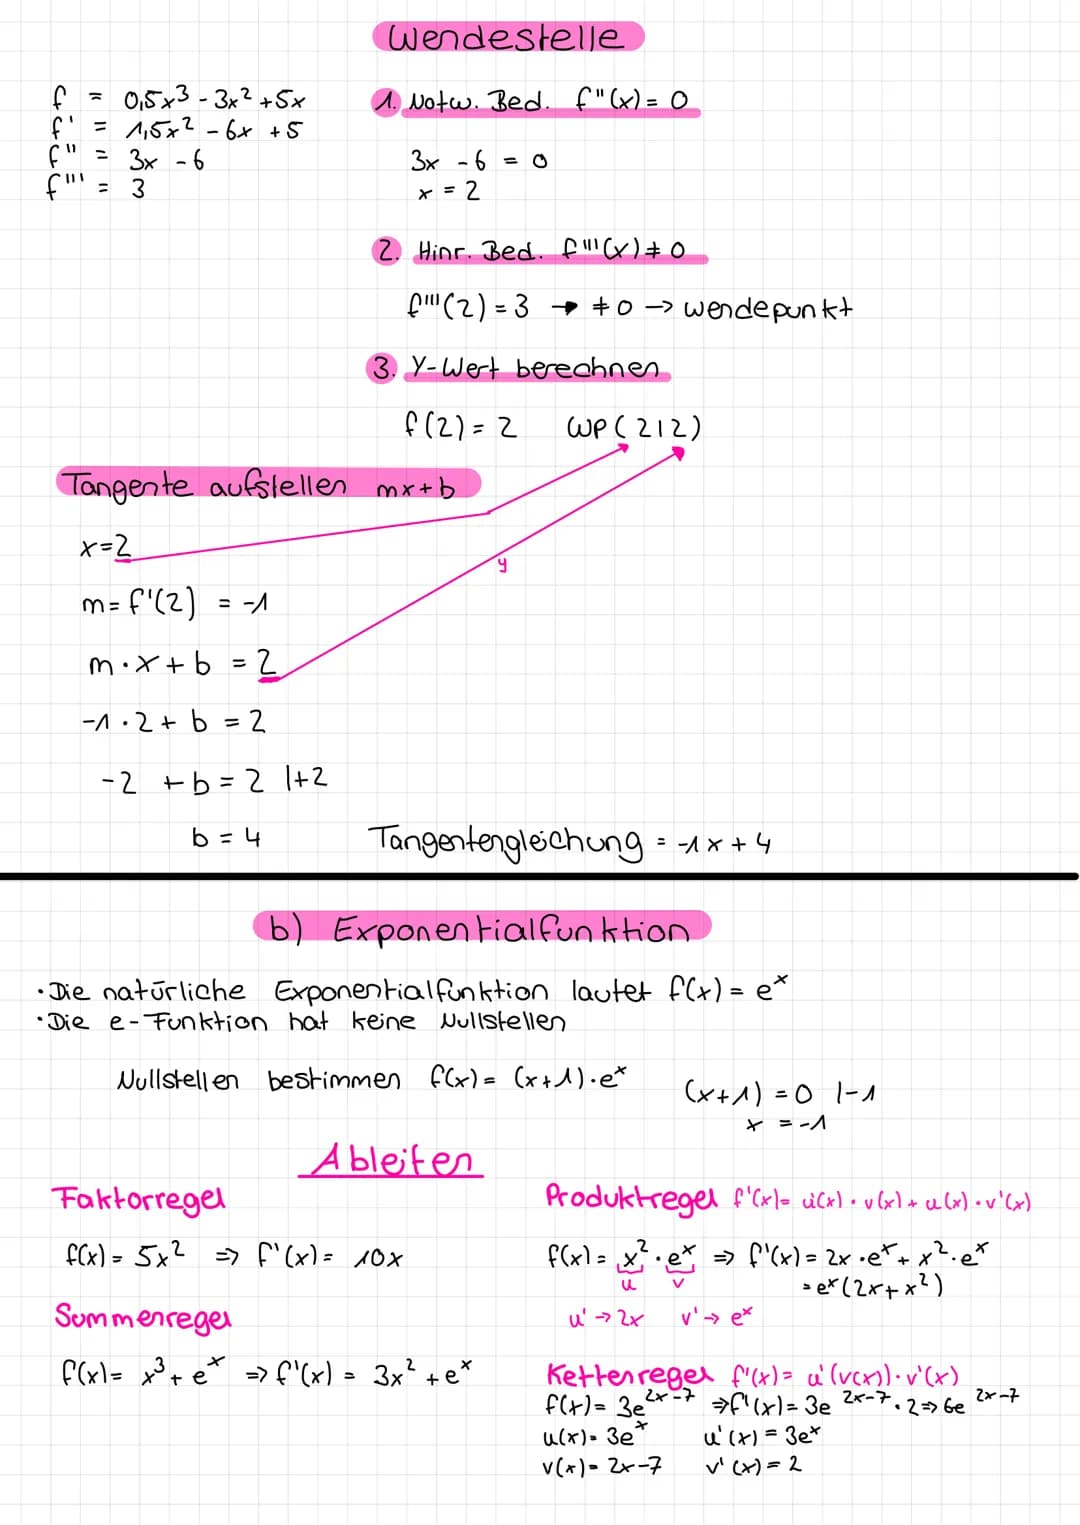 Wendestelle
f = 0,5x³ - 3x² + 5x
f' = 1,5x² - 6x + 5
f'' = 3x - 6
f''' = 3
1. Notw. Bed. f''(x) = 0
3x - 6 = 0
x = 2
2. Hinr. Bed. f'''(x) ≠ 0
f'''(2) = 3 → ≠ 0 → Wendepunkt
3. Y-Wert berechnen
f(2) = 2 WP(2|2)
Tangente aufstellen mx+b
x=2
y
m = f'(2) = -1
m·x + b = 2
-1·2 + b = 2
-2 + b = 2 |+2
b = 4
Tangentengleichung = -1x + 4
b) Exponentialfunktion
·Die natürliche Exponentialfunktion lautet f(x) = eˣ
·Die e-Funktion hat keine Nullstellen
Nullstellen bestimmen f(x) = (x+1)·eˣ
(x+1) = 0 |-1
x = -1
Ableiten
Faktorregel
f(x) = 5x² ⇒ f'(x) = 10x
Summenregel
f(x) = x³ + eˣ ⇒ f'(x) = 3x² + eˣ
Produktregel f'(x) = u'(x)·v(x) + u(x)·v'(x)
f(x) = x²·eˣ ⇒ f'(x) = 2x·eˣ + x²·eˣ
u v
= eˣ(2x + x²)
u' → 2x v' → eˣ
Kettenregel f'(x) = u'(v(x))·v'(x)
f(x) = 3e²ˣ⁻⁷ ⇒ f'(x) = 3e²ˣ⁻⁷·2 ⇒ 6e²ˣ⁻⁷
u(x) = 3eˣ u'(x) = 3eˣ
v(x) = 2x-7 v'(x) = 2